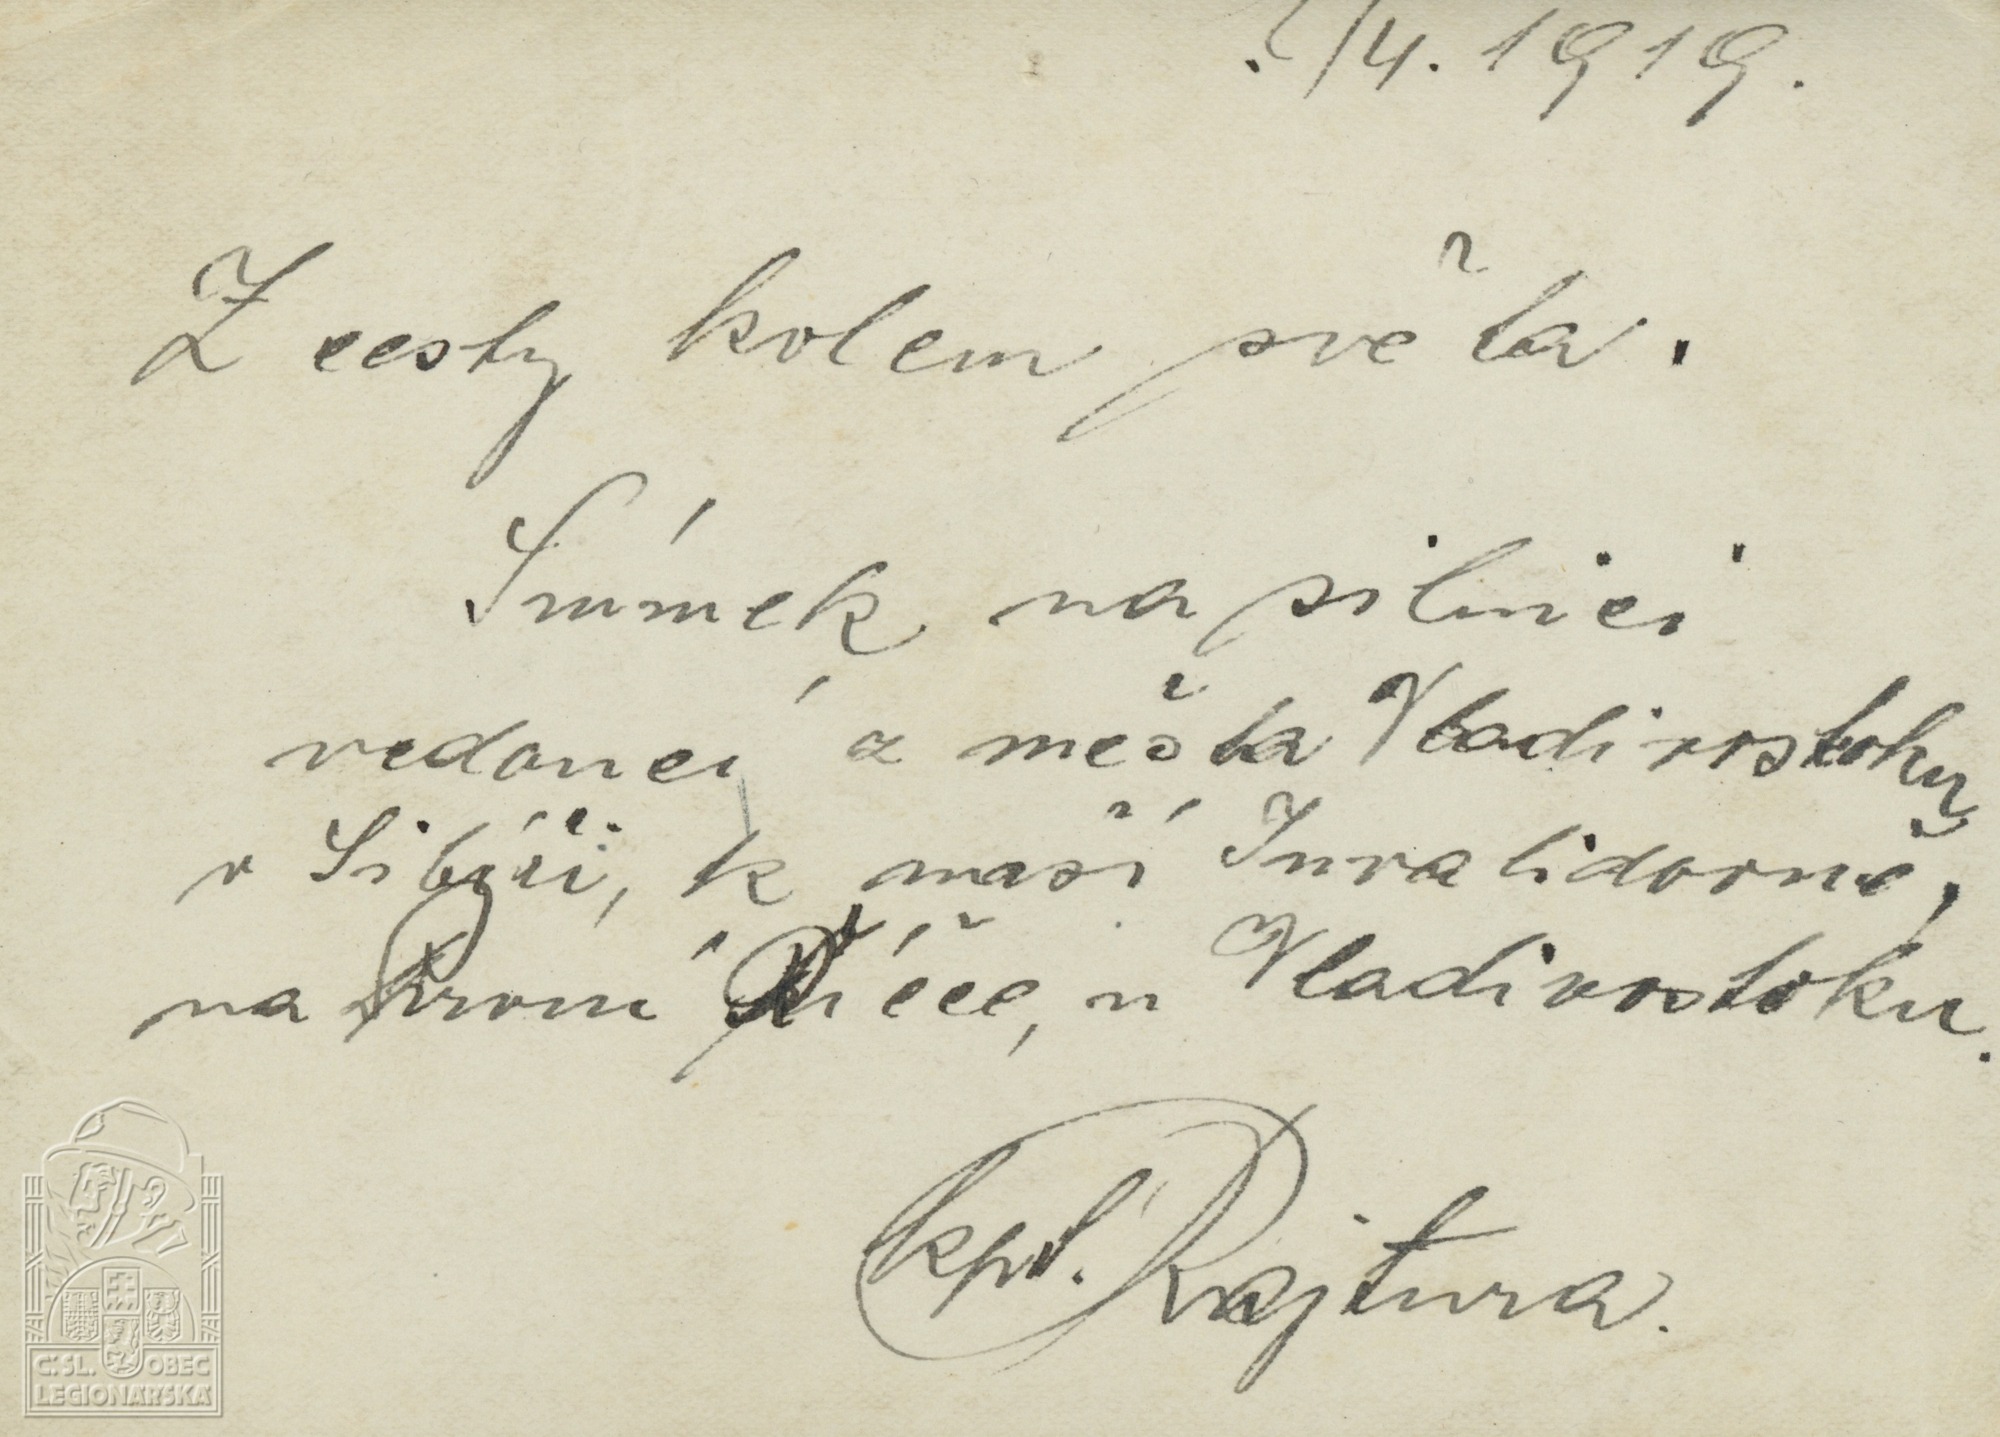 2/4. 1919.
Z cesty kolem světa.
Snímek na silnici
vedoucí z města Vladivostoku
v Sibíři, k naší Invalidovně,
na První Říčce, u Vladivostoku.
kpl. Rajtura.
Č.SL. OBEC
LEGIONÁŘSKÁ